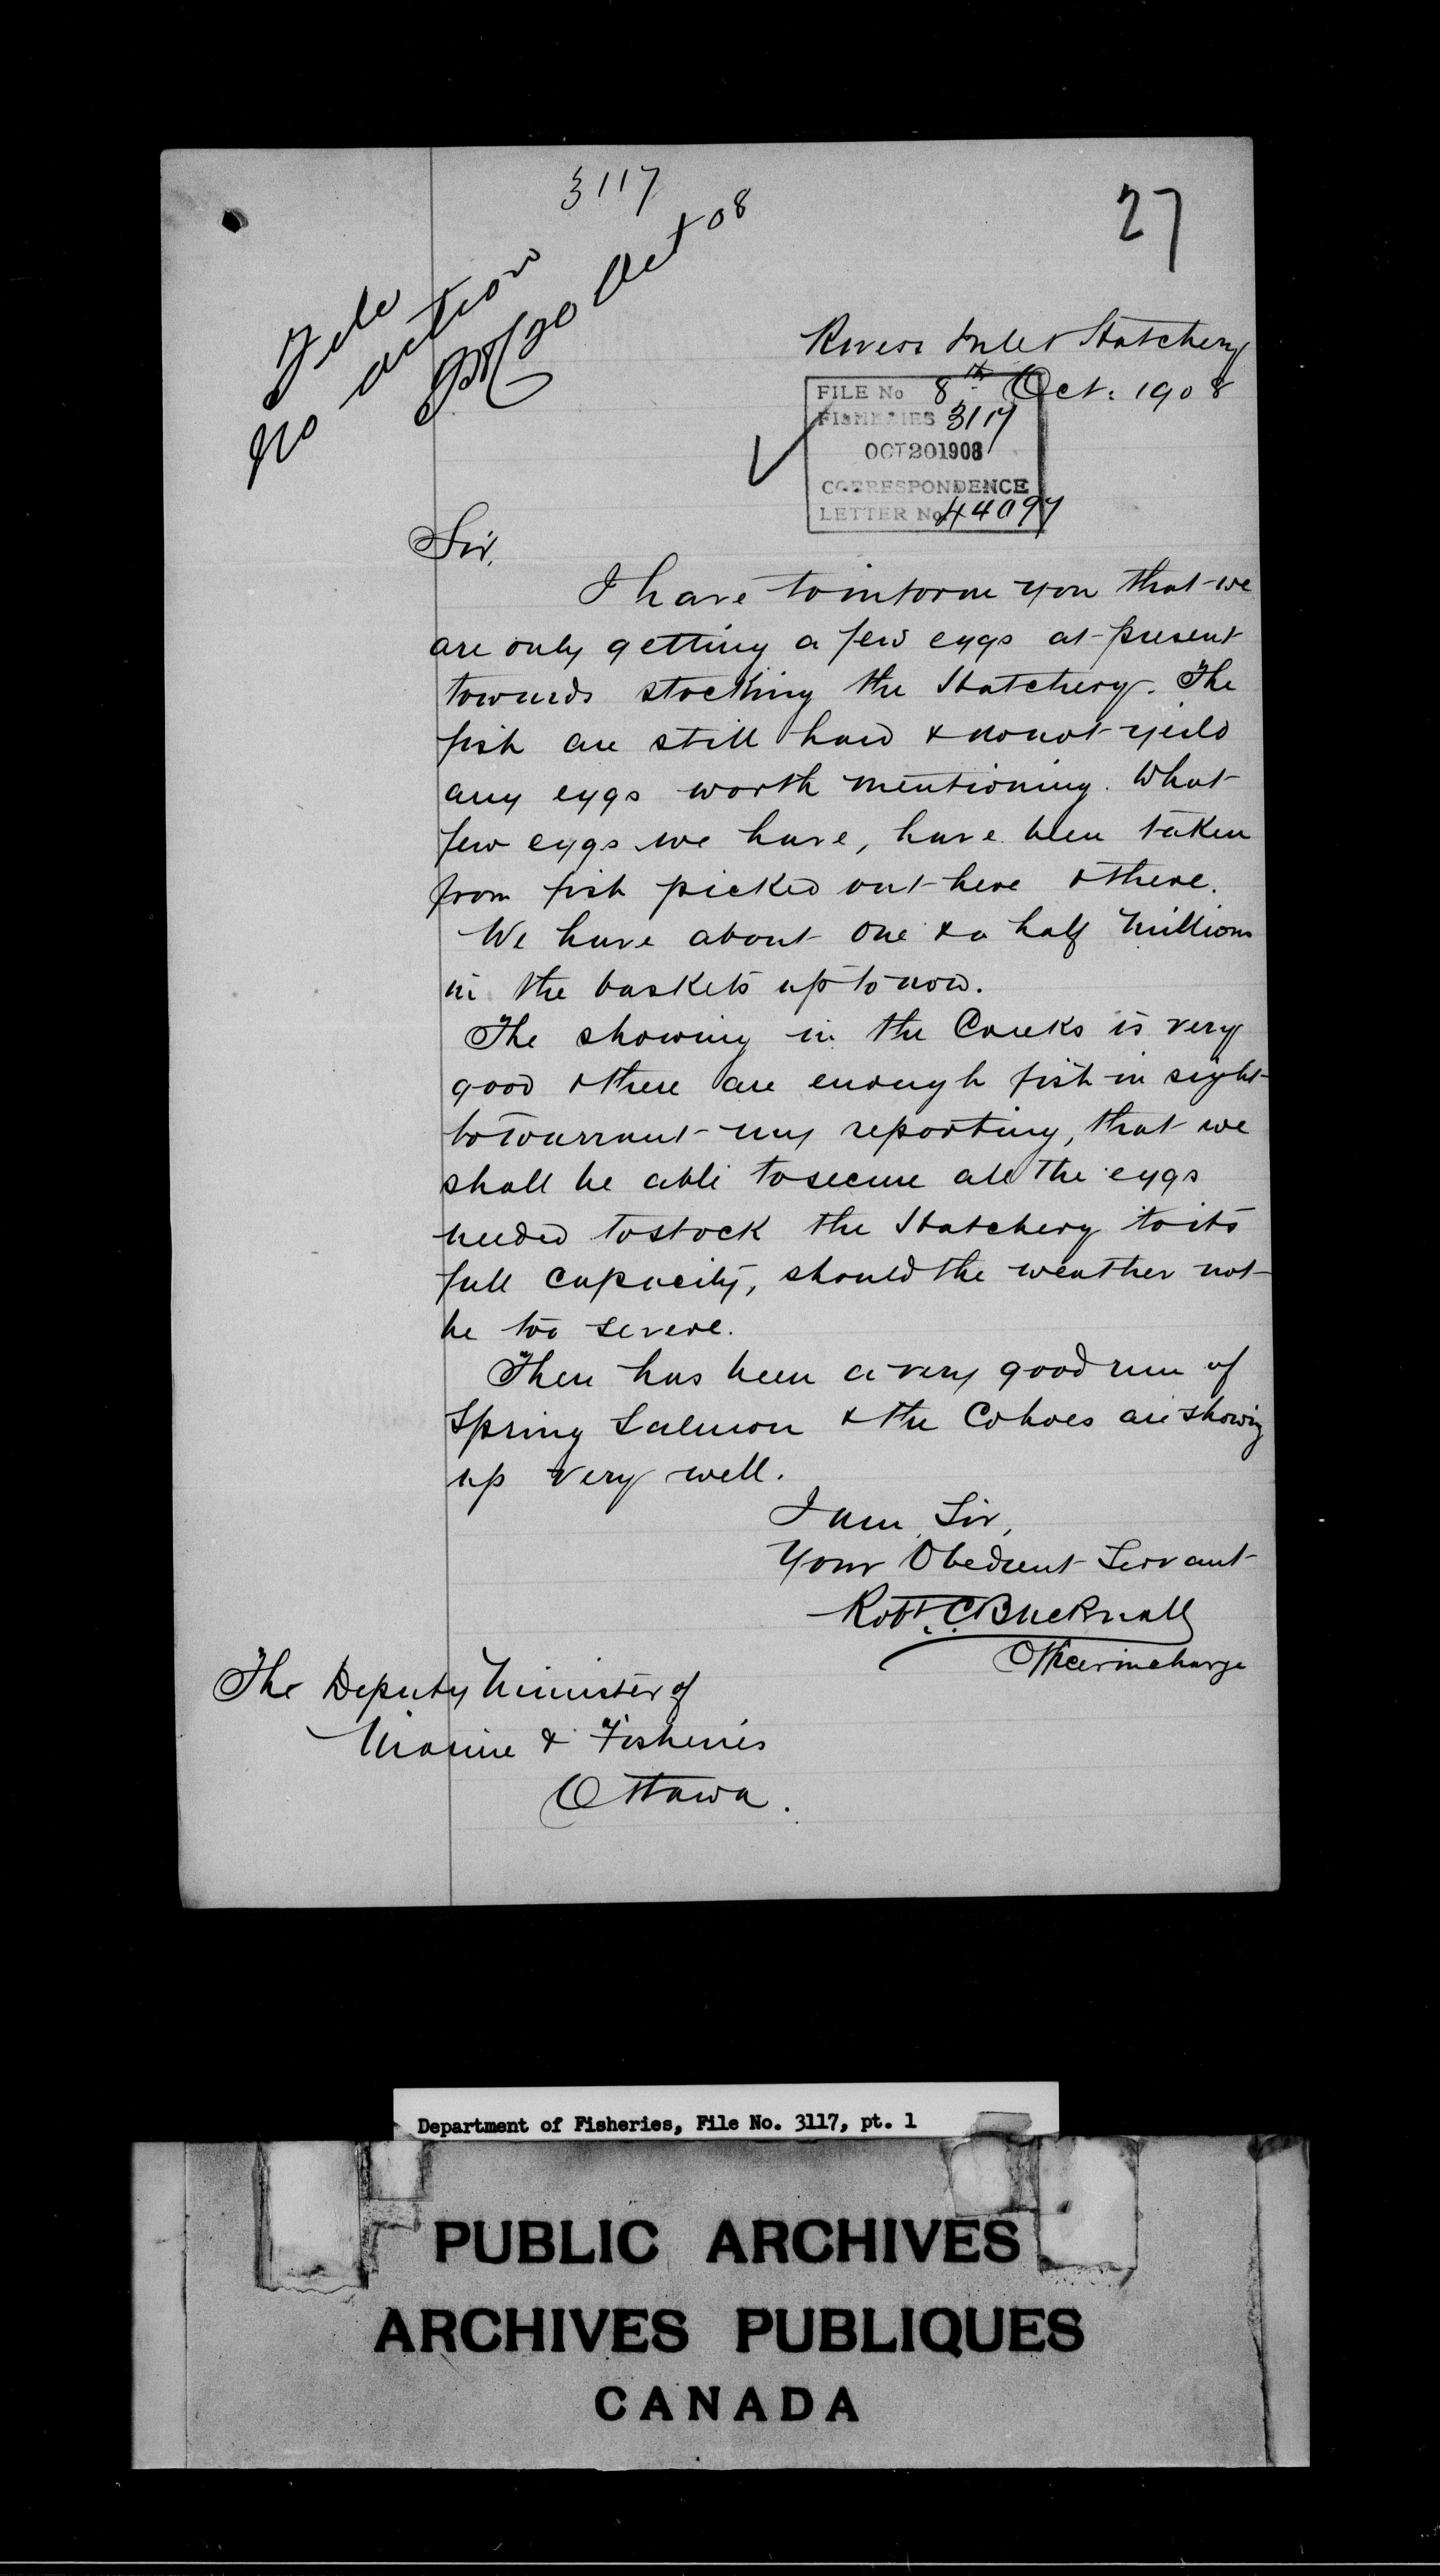 3117
27
File
No action
20 Oct 08
Rivers Inlet Hatchery
8th Oct: 1908
FILE No
FISHERIES 3117
OCT 20 1908
CORRESPONDENCE
LETTER No 44097
Sir,
I have to inform you that we
are only getting a few eggs at present
towards stocking the Hatchery. The
fish are still hard & do not yeild
any eggs worth mentioning. What
few eggs we have, have been taken
from fish picked out here & there.
We have about one & a half millions
in the baskets up to now.
The showing in the Creeks is very
good & there are enough fish in sight
to warrant my reporting, that we
shall be able to secure all the eggs
needed to stock the Hatchery to its
full capacity, should the weather not
be too severe.
There has been a very good run of
Spring Salmon & the Cohoes are showing
up very well.
I am, Sir,
Your Obedient Servant
Robt. C. Bucknall
Officer in charge
The Deputy Minister of
Marine & Fisheries
Ottawa.
Department of Fisheries, File No. 3117, pt. 1
PUBLIC ARCHIVES
ARCHIVES PUBLIQUES
CANADA